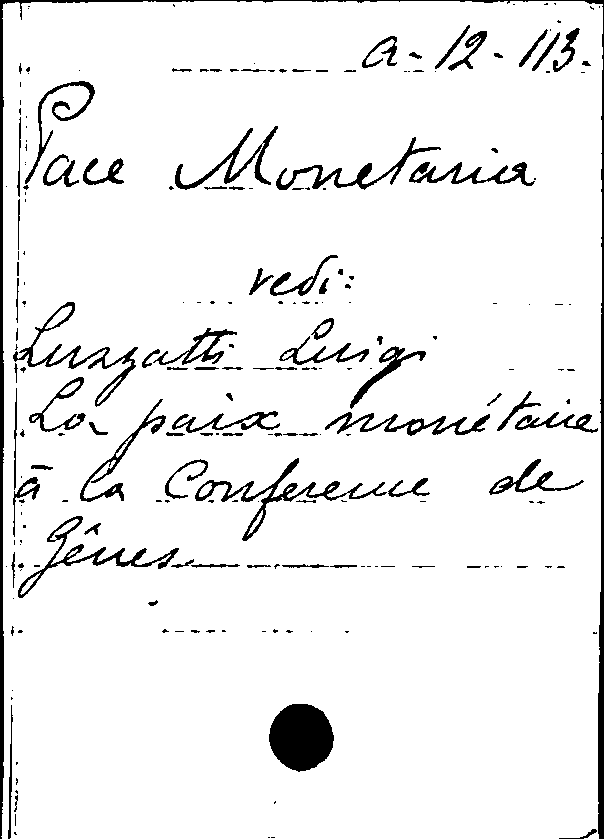 a-12-113.
Pace Monetaria
vedi:
Luzzatti Luigi
La paix monétaire
à la Conference de
Gênes